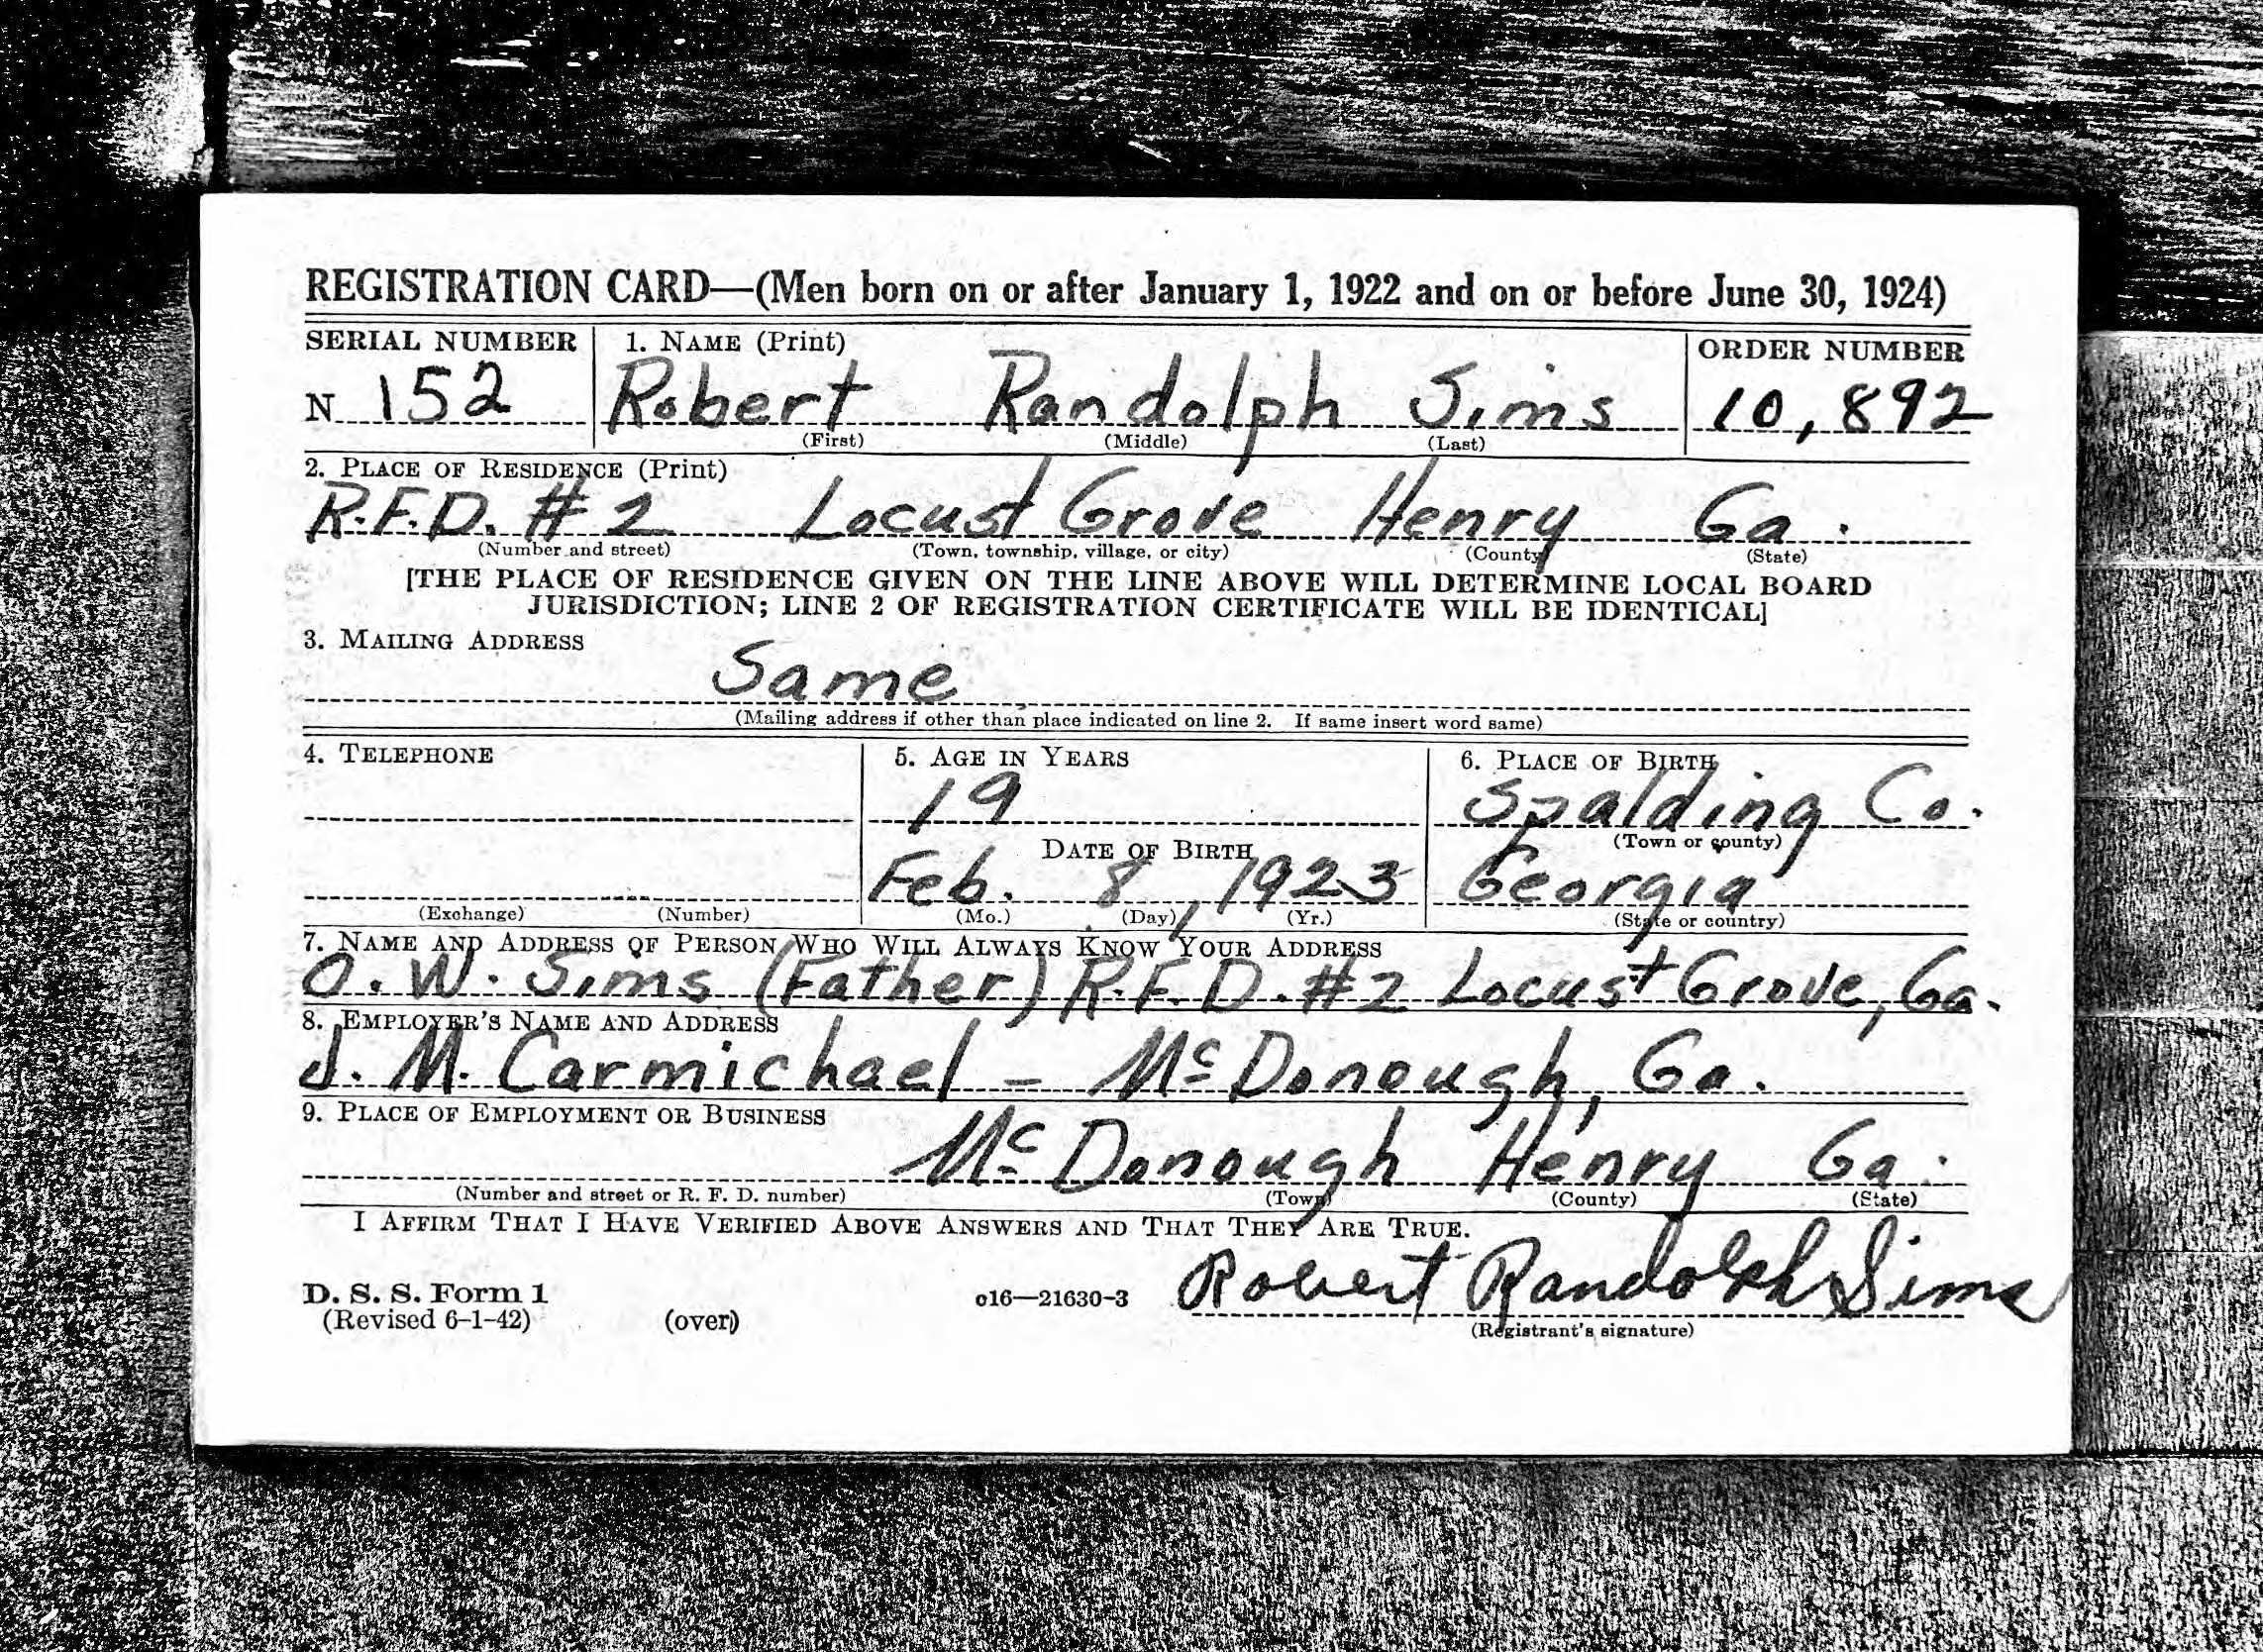 REGISTRATION CARD—(Men born on or after January 1, 1922 and on or before June 30, 1924)
SERIAL NUMBER 1. NAME (Print) ORDER NUMBER
N 152 Robert Randolph Sims 10,892
(First) (Middle) (Last)
2. PLACE OF RESIDENCE (Print)
R.F.D. #2 Locust Grove Henry Ga.
(Number and street) (Town, township, village, or city) (County) (State)
[THE PLACE OF RESIDENCE GIVEN ON THE LINE ABOVE WILL DETERMINE LOCAL BOARD
JURISDICTION; LINE 2 OF REGISTRATION CERTIFICATE WILL BE IDENTICAL]
3. MAILING ADDRESS
Same
(Mailing address if other than place indicated on line 2. If same insert word same)
4. TELEPHONE 5. AGE IN YEARS 6. PLACE OF BIRTH
19 Spalding Co.
DATE OF BIRTH (Town or county)
Feb. 8, 1923 Georgia
(Exchange) (Number) (Mo.) (Day) (Yr.) (State or country)
7. NAME AND ADDRESS OF PERSON WHO WILL ALWAYS KNOW YOUR ADDRESS
O. W. Sims (Father) R.F.D. #2 Locust Grove, Ga.
8. EMPLOYER'S NAME AND ADDRESS
J. M. Carmichael - McDonough, Ga.
9. PLACE OF EMPLOYMENT OR BUSINESS
McDonough Henry Ga.
(Number and street or R. F. D. number) (Town) (County) (State)
I AFFIRM THAT I HAVE VERIFIED ABOVE ANSWERS AND THAT THEY ARE TRUE.
D. S. S. Form 1 c16—21630-3 Robert Randolph Sims
(Revised 6-1-42) (over) (Registrant's signature)